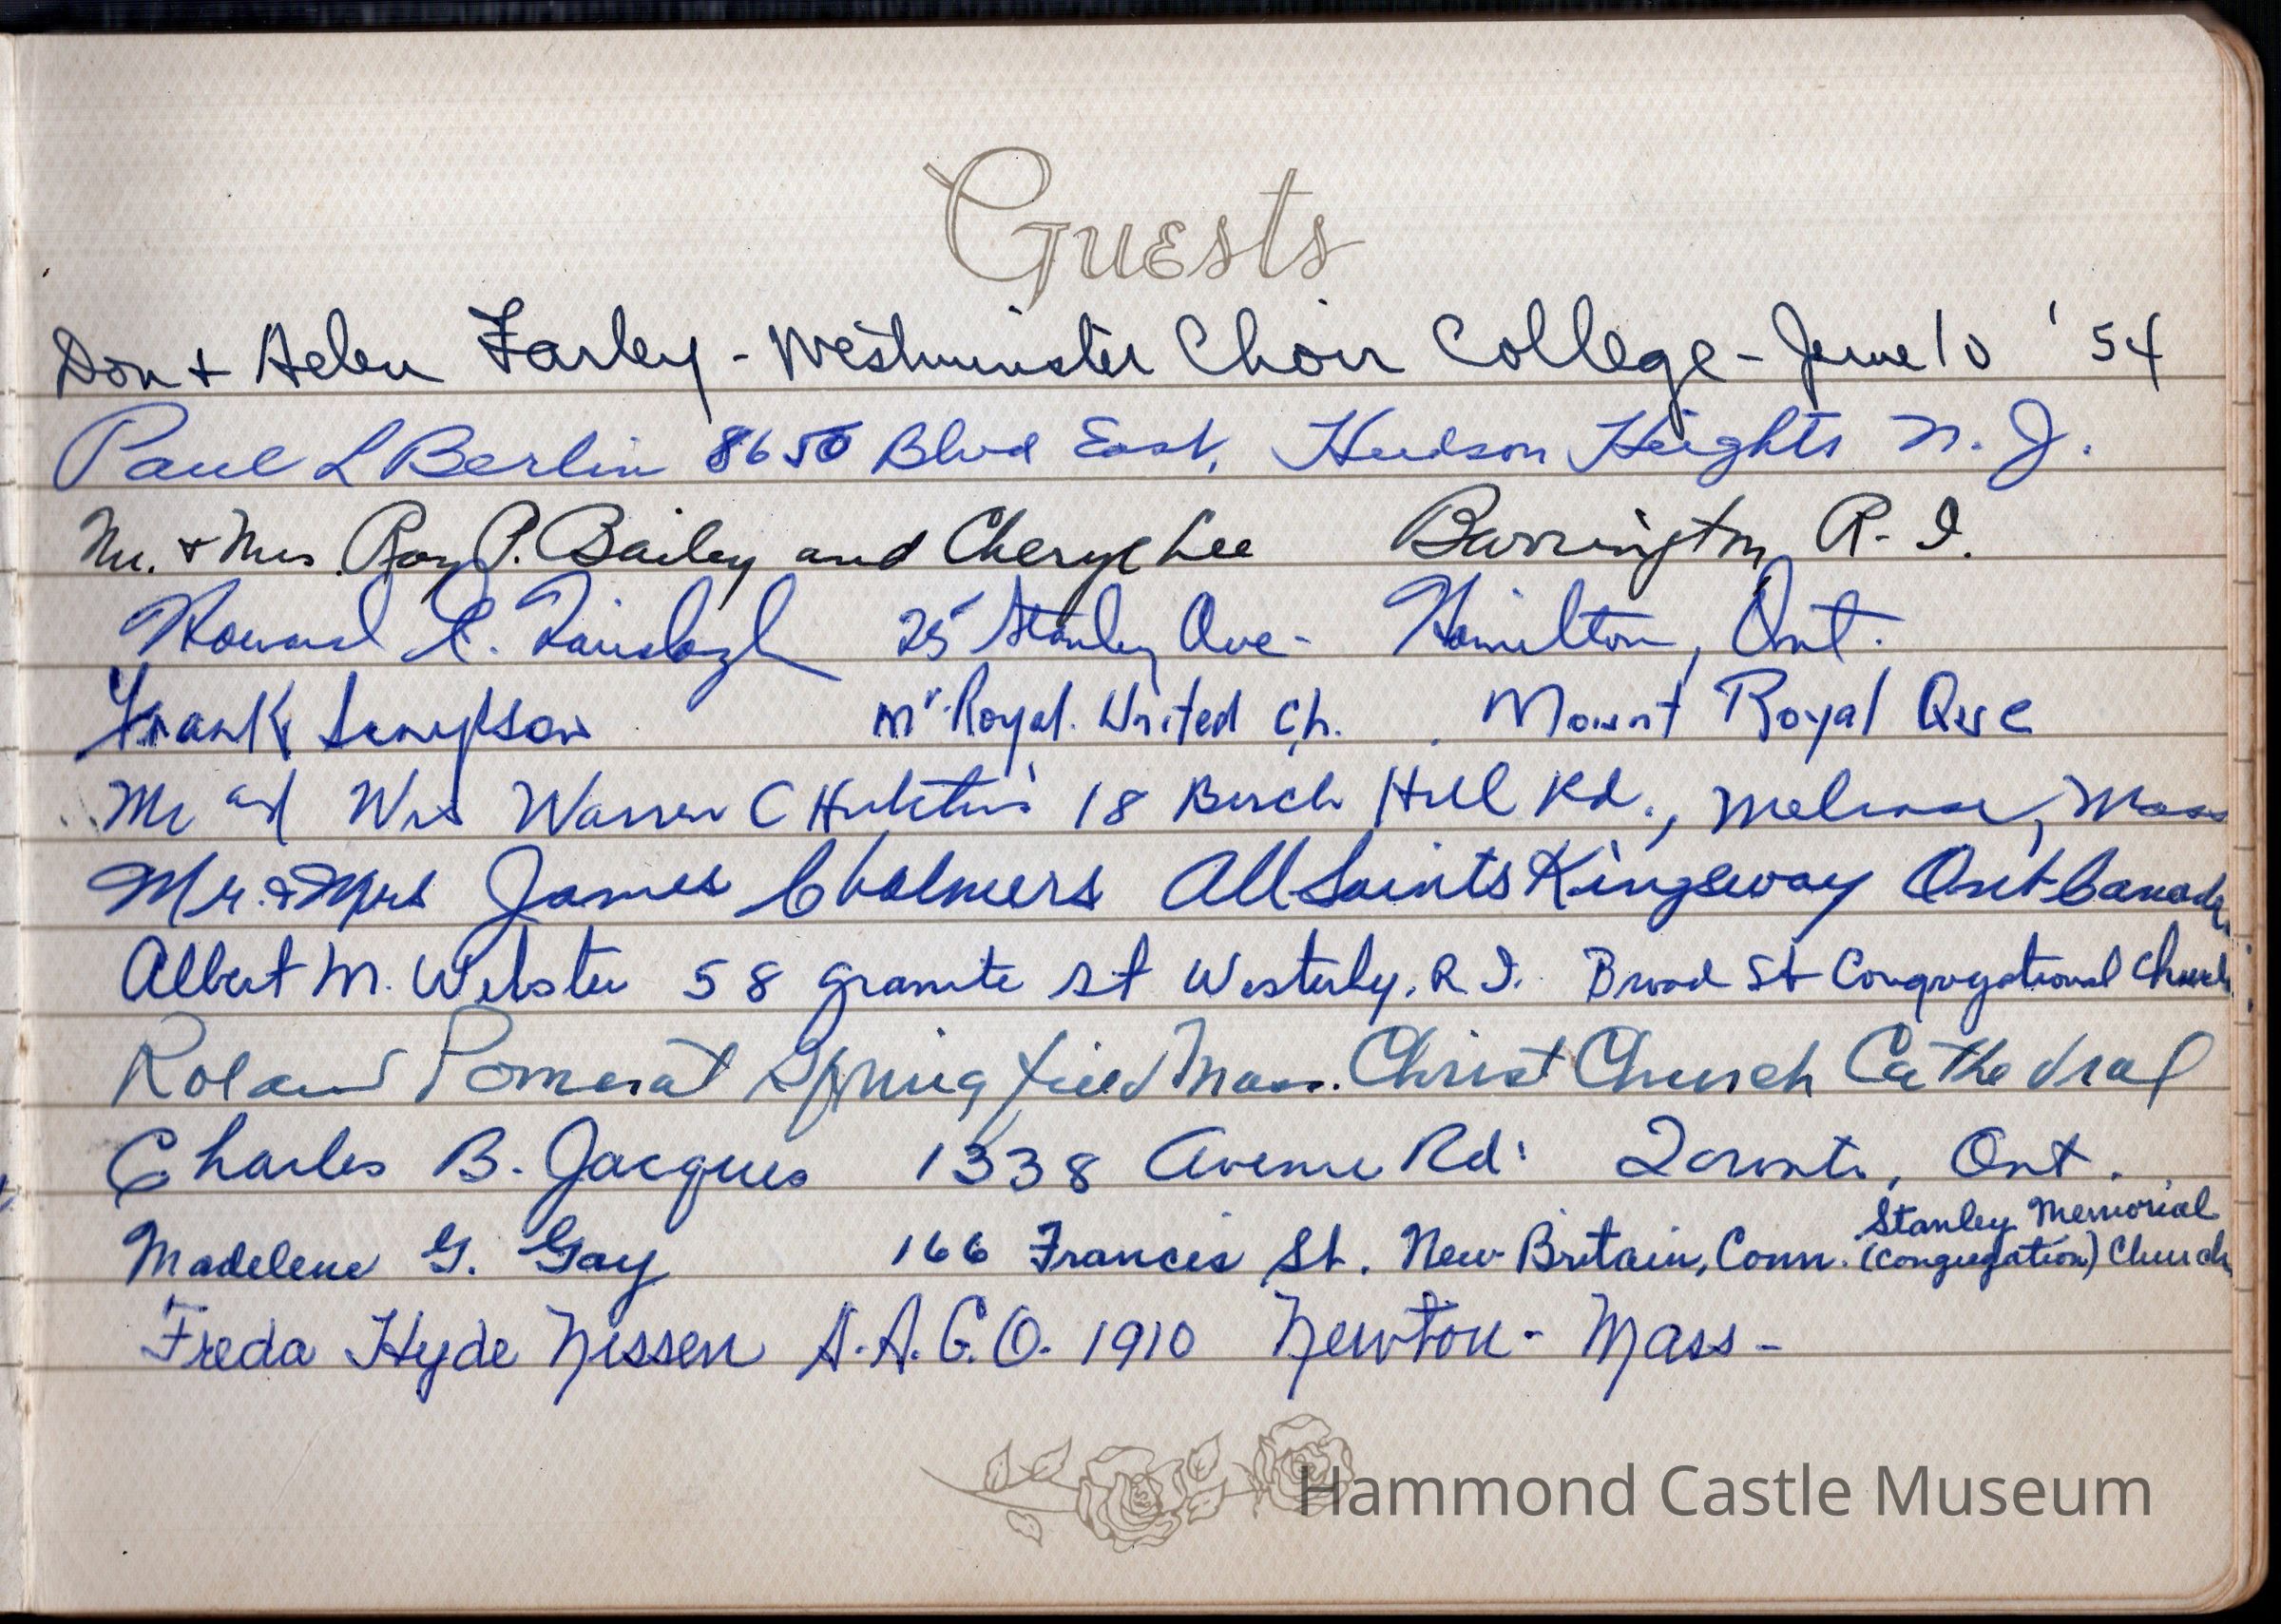 Guests
Don + Helen Farley - Westminster Choir College - June 10 '54
Paul L Berlin 8650 Blvd East, Hudson Heights N. J.
Mr. + Mrs. Roy P. Bailey and Cheryl Lee Barrington R. I.
Howard R. 25 Stanley Ave - Hamilton, Ont.
Frank Mt. Royal. United Ch. Mount Royal Que
Mr and Mrs Warren C 18 Birch Hill Rd., Melrose, Mass
Mr. & Mrs James Chalmers All Saints Kingsway Ont Canada
Albert M. Webster 58 Granite St Westerly, R. I. Broad St Congregational Church
Roland Pomerat Springfield Mass. Christ Church Cathedral
Charles B. Jacques 1338 Avenue Rd. Toronto, Ont.
Madelene G. Gay 166 Francis St. New Britain, Conn. Stanley Memorial
(Congregation) Church
Freda Hyde Nissen A.A.G.O. 1910 Newton - Mass -
Hammond Castle Museum